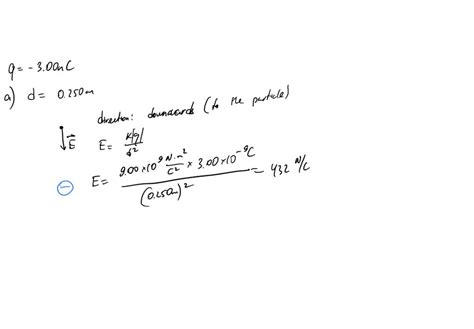 q = -3.00nC
a) d = 0.250m
direction: downwards (to the particle)
↓E⃗ E = k|q|/d²
⊖ E = 9.00×10⁹ N·m²/C² × 3.00×10⁻⁹C / (0.250m)² = 432 N/C